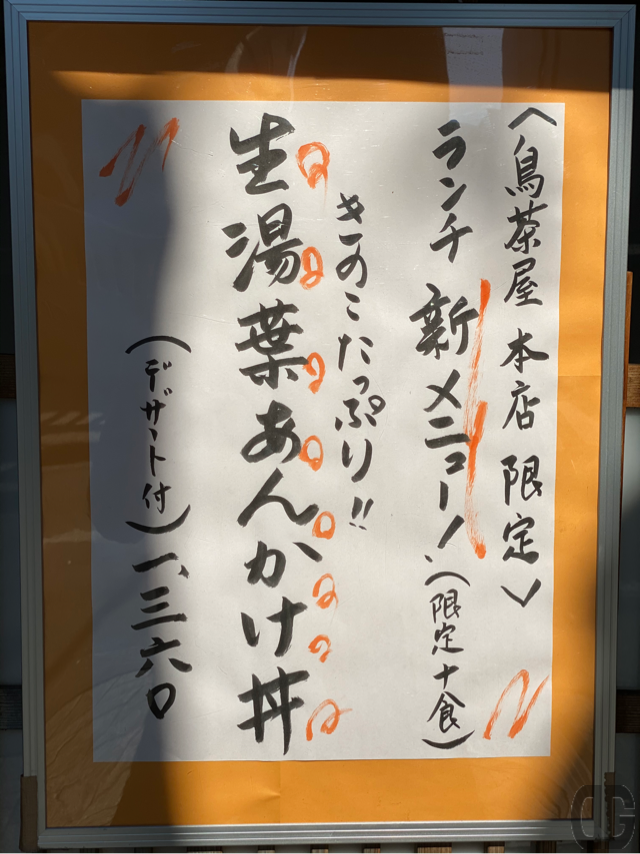 〈鳥茶屋 本店 限定〉
ランチ 新メニュー!(限定十食)
きのこたっぷり!!
生湯葉あんかけ丼
(デザート付)一、三六〇